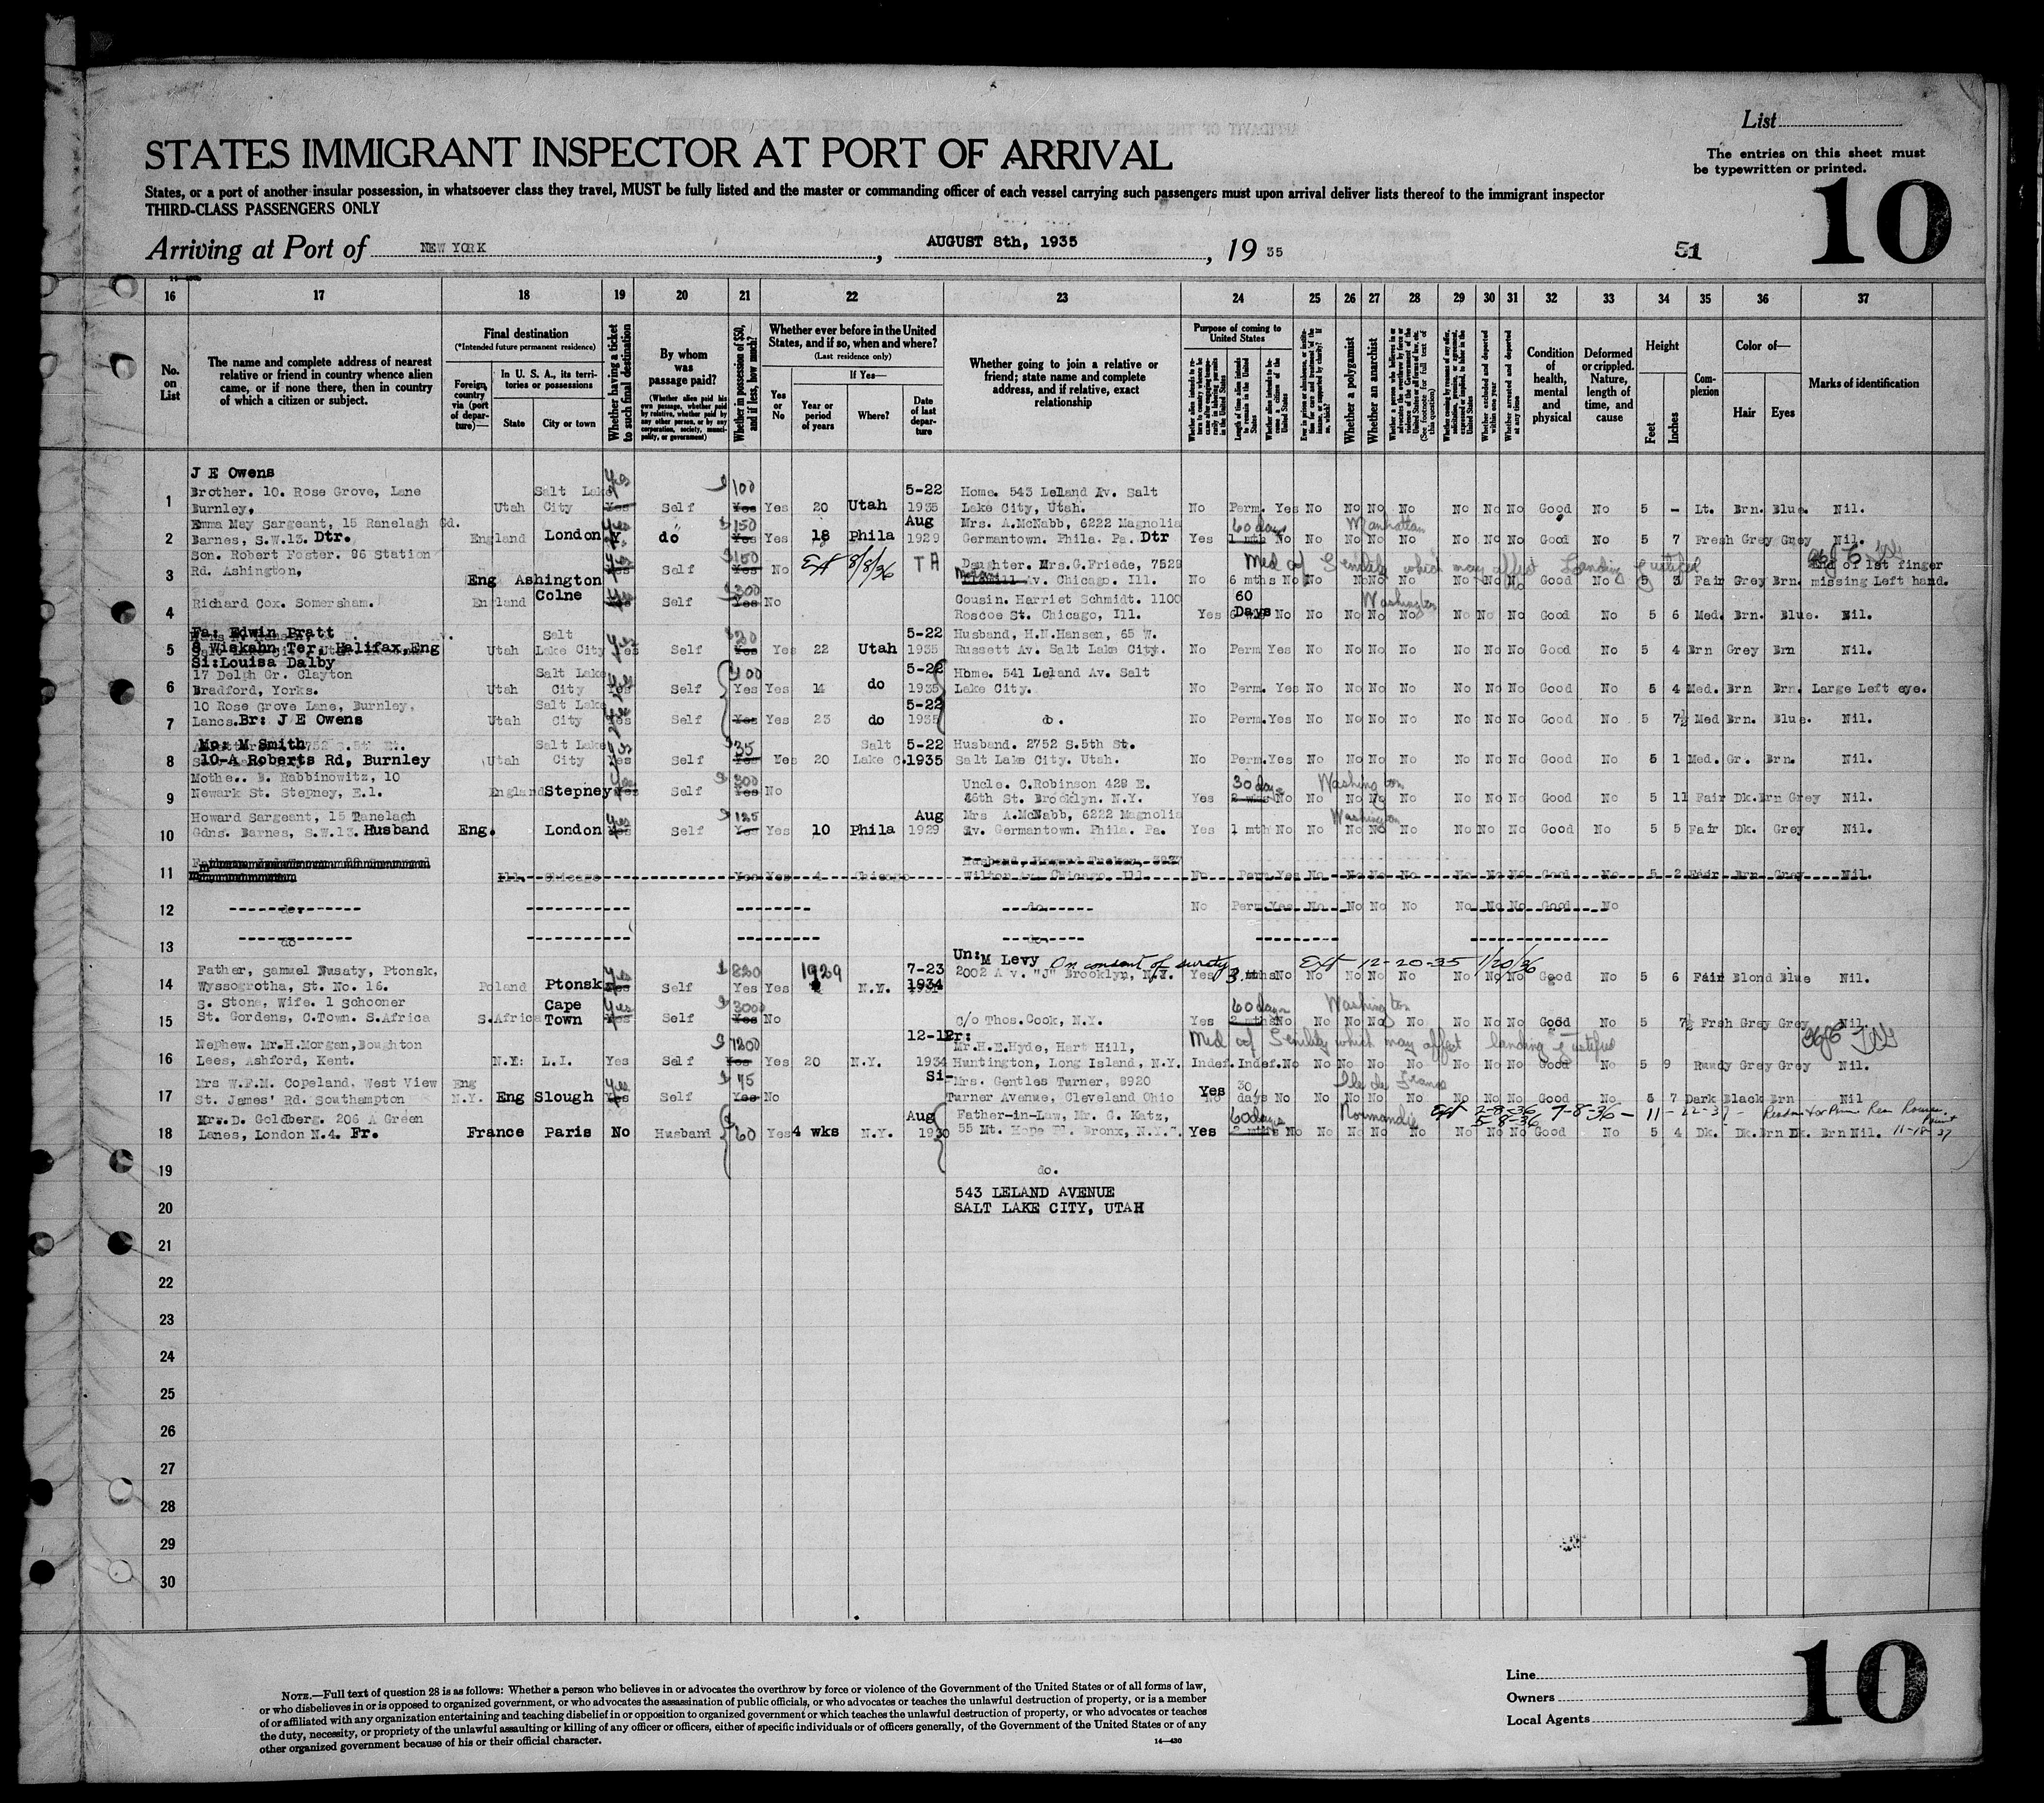 List
The entries on this sheet must
be typewritten or printed.
STATES IMMIGRANT INSPECTOR AT PORT OF ARRIVAL
10
States, or a port of another insular possession, in whatsoever class they travel, MUST be fully listed and the master or commanding officer of each vessel carrying such passengers must upon arrival deliver lists thereof to the immigrant inspector
THIRD-CLASS PASSENGERS ONLY
Arriving at Port of NEW YORK, AUGUST 8th, 1935, 19 35
51
16 17 18 19 20 21 22 23 24 25 26 27 28 29 30 31 32 33 34 35 36 37
No. on List
The name and complete address of nearest relative or friend in country whence alien came, or if none there, then in country of which a citizen or subject.
Final destination
(*Intended future permanent residence)
Foreign, country via (port of departure)—
In U. S. A., its territories or possessions
State
City or town
Whether having a ticket to such final destination
By whom was passage paid?
(Whether alien paid his own passage, whether paid by relative, whether paid by any other person, or by any corporation, society, municipality, or government)
Whether in possession of $50, and if less, how much?
Whether ever before in the United States, and if so, when and where?
(Last residence only)
Yes or No
If Yes—
Year or period of years
Where?
Date of last departure
Whether going to join a relative or friend; state name and complete address, and if relative, exact relationship
Purpose of coming to United States
Whether a polygamist
Whether an anarchist
Condition of health, mental and physical
Deformed or crippled. Nature, length of time, and cause
Height
Feet
Inches
Complexion
Color of—
Hair
Eyes
Marks of identification
J E Owens
1 Brother. 10. Rose Grove, Lane Burnley, Utah Salt Lake City Yes Self $100 Yes Yes 20 Utah 5-22 1935 Home. 543 Leland Av. Salt Lake City, Utah. No Perm. Yes No No No No No No No Good No 5 - Lt. Brn. Blue. Nil.
2 Emma May Sargeant, 15 Ranelagh Gd. Barnes, S.W.13. Dtr. England London do $150 Yes Yes 18 Phila Aug 1929 Mrs. A.McNabb, 6222 Magnolia Germantown. Phila. Pa. Dtr Yes 60 days 1 mth No Manhattan No No No No No No No Good No 5 7 Fresh Grey Grey Nil.
3 Son. Robert Foster. 86 Station Rd. Ashington, Eng Ashington Yes Self $150 Yes No Ext 8/8/36 T A Daughter. Mrs.G.Friede, 7529 Av. Chicago. Ill. No 6 mths No No Med cf Senility which may affect Landing justified No No No No No No Good No 5 3 Fair Grey Brn. End of 1st finger missing Left hand.
4 Richard Cox. Somersham. England Colne Yes Self $300 Yes No Cousin. Harriet Schmidt. 1100 Roscoe St. Chicago, Ill. Yes 60 Days No No Washington No No No No No No Good No 5 6 Med. Brn. Blue. Nil.
5 Fa: Edwin Pratt 8 Wiskahn Ter, Halifax,Eng Utah Salt Lake City Yes Self $20 Yes Yes 22 Utah 5-22 1935 Husband, H.N.Hansen, 65 W. Russett Av. Salt Lake City. No Perm Yes No No No No No No No Good No 5 4 Brn Grey Brn Nil.
6 Si:Louisa Dalby 17 Delph Gr. Clayton Bradford, Yorks. Utah Salt Lake City Yes Self 400 Yes Yes 14 do 5-22 1935 Home. 541 Leland Av. Salt Lake City. No Perm. Yes No No No No No No No Good No 5 4 Med. Brn Brn. Large Left eye.
7 10 Rose Grove Lane, Burnley, Lancs.Br: J E Owens Utah Salt Lake City Yes Self Yes Yes 23 do 5-22 1935 do. No Perm.Yes No No No No No No No Good No 5 7½ Med Brn. Blue. Nil.
8 Mo: M Smith 10-A Roberts Rd, Burnley Utah Salt Lake City Yes Self $35 Yes Yes 20 Salt Lake C. 5-22 1935 Husband. 2752 S.5th St. Salt Lake City. Utah. No Perm.Yes No No No No No No No Good No 5 1 Med. Gr. Brn. Nil.
9 Mother. B. Rabbinowitz, 10 Newark St. Stepney, E.1. England Stepney Yes Self $300 Yes No Uncle. C.Robinson 428 E. 46th St. Brooklyn. N.Y. Yes 30 days No Washington No No No No No No No Good No 5 11 Fair Dk.Brn Grey Nil.
10 Howard Sargeant, 15 Ranelagh Gdns. Barnes, S.W.13. Husband Eng. London Yes Self $125 Yes Yes 10 Phila Aug 1929 Mrs A.McNabb, 6222 Magnolia Av. Germantown. Phila. Pa. Yes 1 mth No Washington No No No No No No No Good No 5 5 Fair Dk. Grey Nil.
11 Ill. Chicago Yes Yes 4 Chicago Husband, Howard Tucker, Wilton Av. Chicago. Ill. No Perm Yes No No No No No No No Good No 5 2 Fair Brn Grey Nil.
12 do. do No Perm Yes No No No No No No No Good No
13 do do
14 Father, Samuel Nusaty, Ptonsk, Wyssogrotha, St. No. 16. Poland Ptonsk Yes Self $820 Yes Yes 1929 N.Y. 7-23 1934 Un: M Levy 2002 Av. "J" Brooklyn, N.Y. On consent of surety Yes 3 mths No Ext 12-20-35 1/20/36 No No No No No No No Good No 5 6 Fair Blond Blue Nil.
15 S. Stone, Wife. 1 Schooner St. Gordens, C.Town. S.Africa S.Africa Cape Town Yes Self $3000 Yes No c/o Thos.Cook, N.Y. Yes 60 days 2 mths No Washington No No No No No No No Good No 5 7½ Frsh Grey Grey Nil.
16 Nephew. Mr.H.Morgan,Boughton Lees, Ashford, Kent. N.Y: L.I. Yes Self $7200 Yes Yes 20 N.Y. 12-12 1934 Mr.H.E.Hyde, Hart Hill, Huntington, Long Island, N.Y. Indef. Indef.No Med cf Senility which may affect landing justified No No No No No No No Good No 5 9 Ruddy Grey Grey Nil.
17 Mrs W.F.M. Copeland, West View St. James' Rd. Southampton Eng N.Y. Eng Slough Yes Self $45 Yes No Si- Mrs. Gentles Turner, 8920 Turner Avenue, Cleveland Ohio Yes 30 days No Ile de France No No No No No No No Good No. 5 7 Dark Black Brn Nil
18 Mrs. D. Goldberg. 206 A Green Lanes, London N.4. Fr. France Paris No Husband 60 Yes 4 wks N.Y. Aug 1930 Father-in-Law, Mr. G. Katz, 55 Mt. Hope Pl. Bronx, N.Y.C. Yes 60 days 2 mths No Normandie Ext 2-8-36 5-8-36 7-8-36 No No No No No No No Good No 5 4 Dk. Dk.Brn Dk. Brn Nil. 11-18-37
19 do.
543 LELAND AVENUE
20 SALT LAKE CITY, UTAH
21
22
23
24
25
26
27
28
29
30
NOTE.—Full text of question 28 is as follows: Whether a person who believes in or advocates the overthrow by force or violence of the Government of the United States or of all forms of law,
or who disbelieves in or is opposed to organized government, or who advocates the assassination of public officials, or who advocates or teaches the unlawful destruction of property, or is a member
of or affiliated with any organization entertaining and teaching disbelief in or opposition to organized government or which teaches the unlawful destruction of property, or who advocates or teaches
the duty, necessity, or propriety of the unlawful assaulting or killing of any officer or officers, either of specific individuals or of officers generally, of the Government of the United States or of any
other organized government because of his or their official character.
14—430
Line
Owners
Local Agents
10